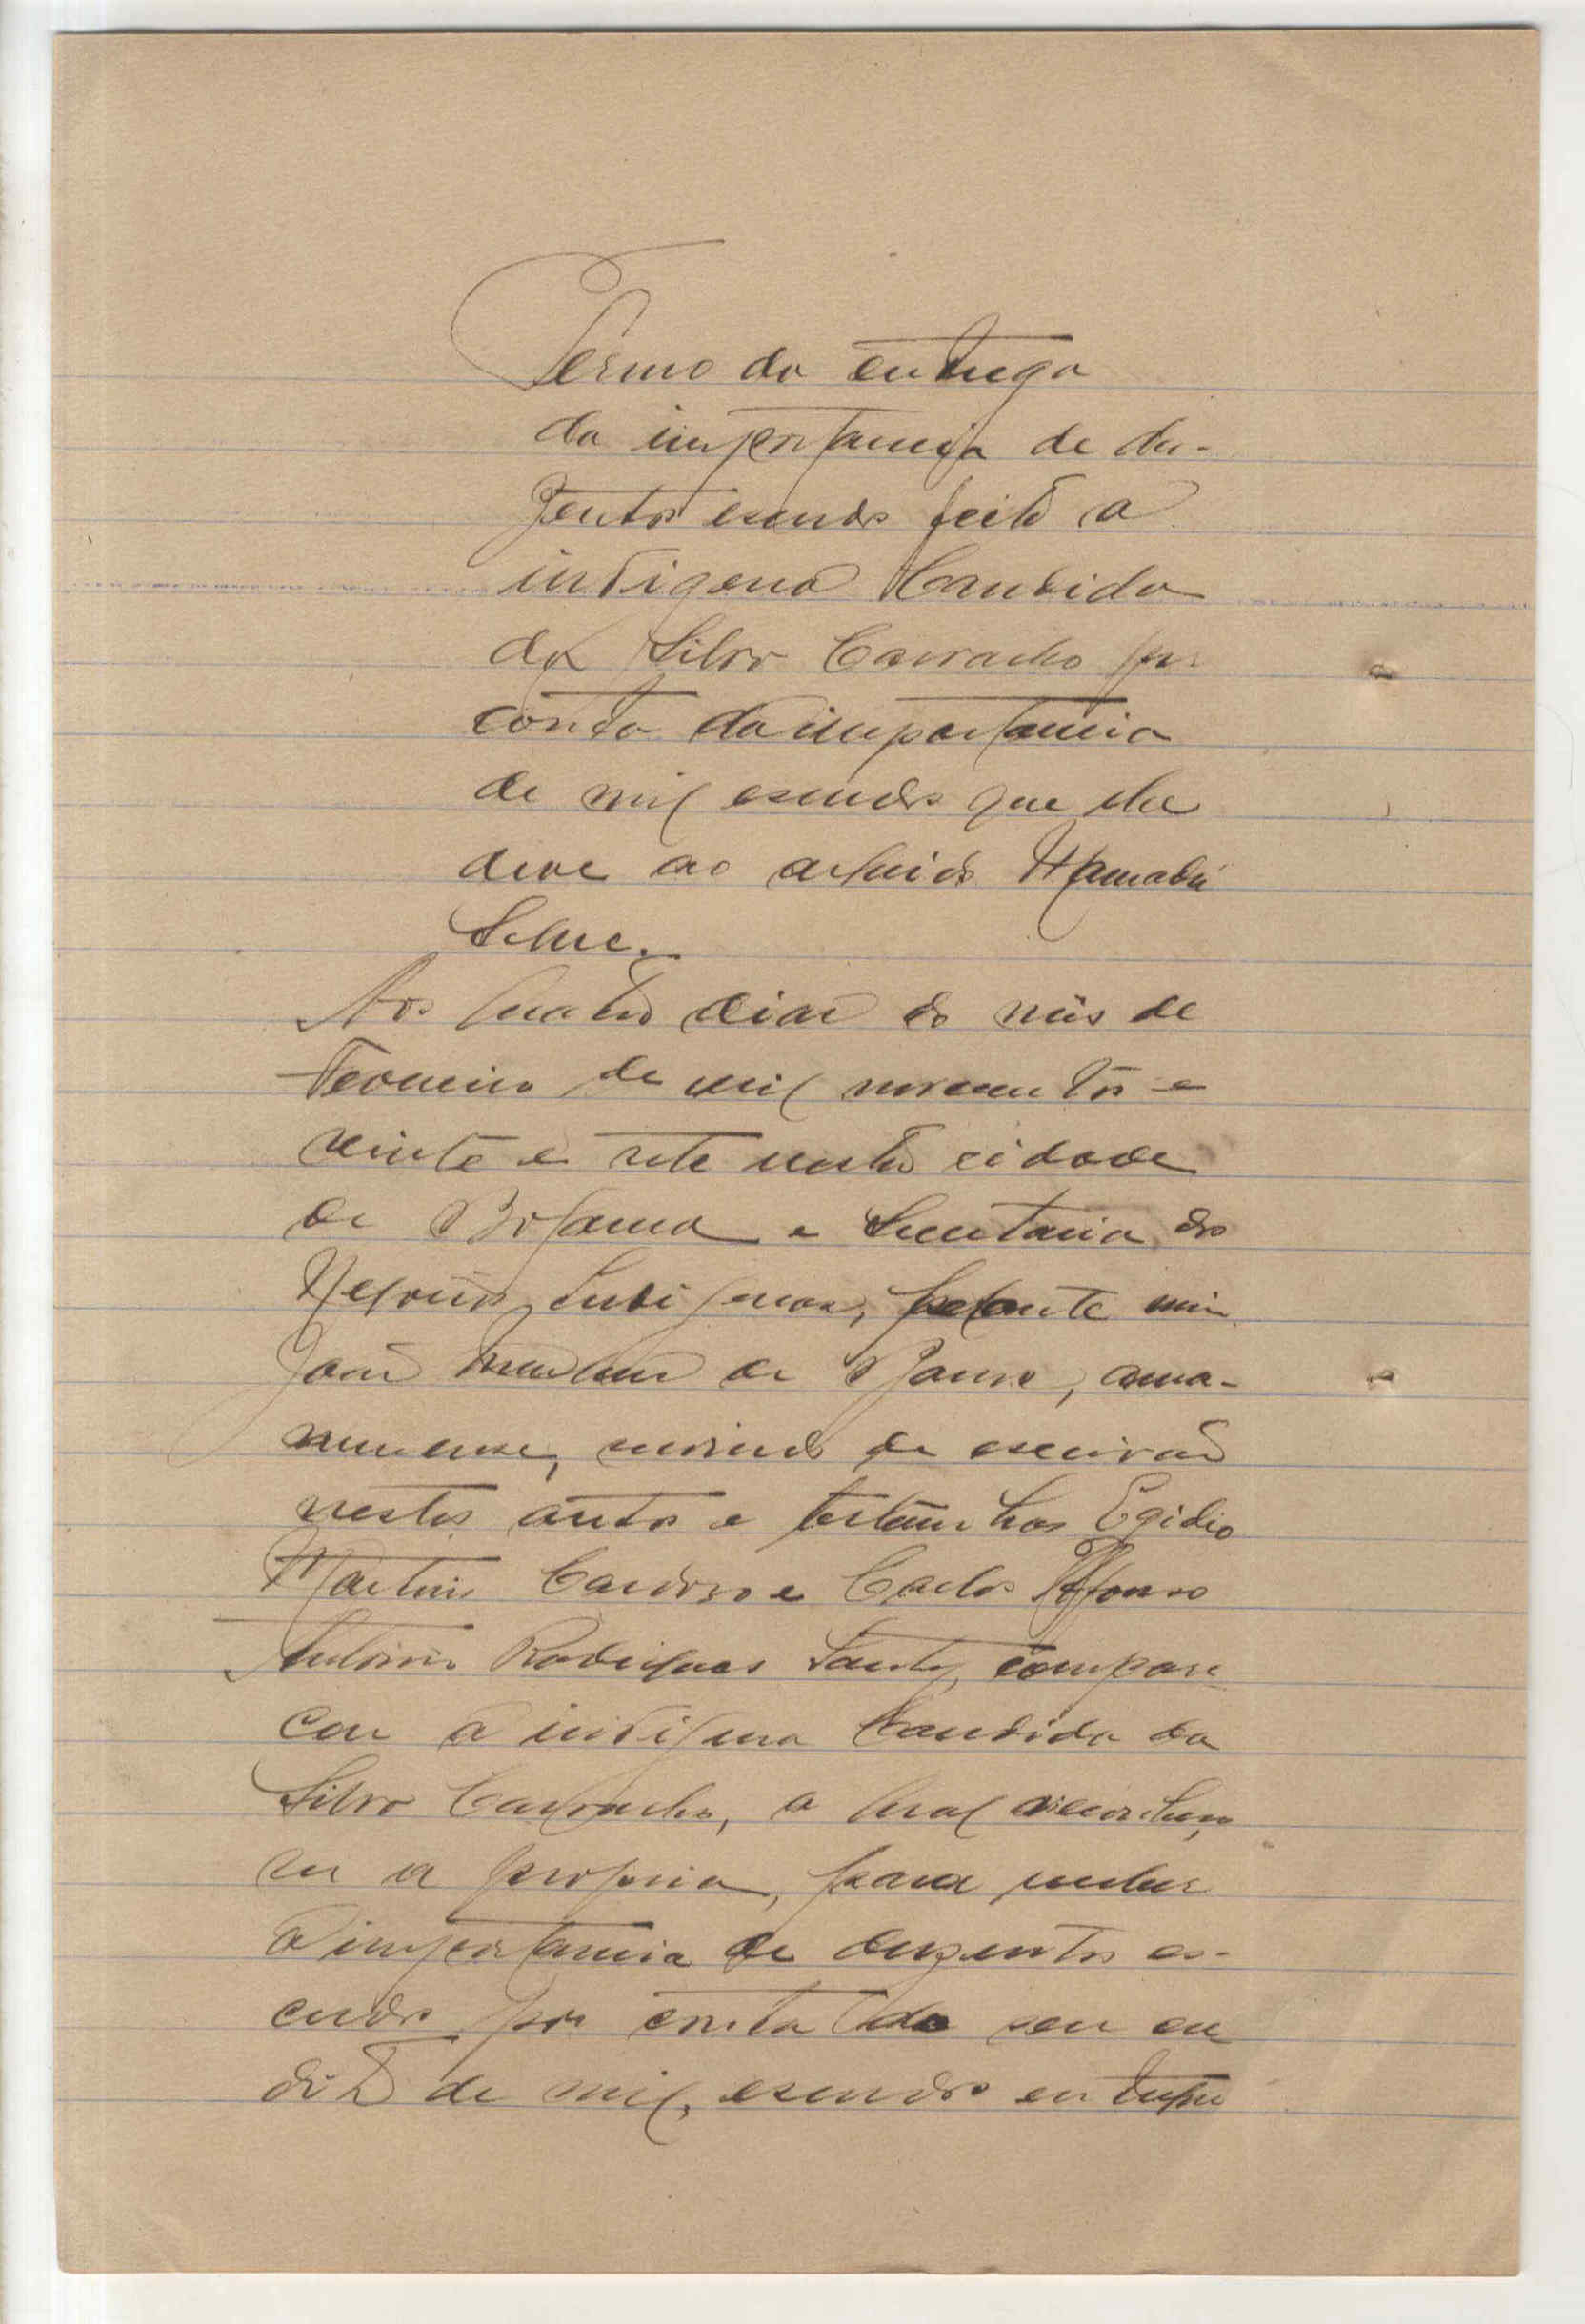 Termo da entrega
da importancia de du-
zentos escudos feita a
indigena Candida
da Silva Carracho por
conta da importancia
de mil escudos que lhe
deve ao arguido Mamadú
Aos quatro dias do mês de
Fevereiro de mil novecentos e
vinte e sete nesta cidade
de Bolama e Secretaria dos
Negocios Indigenas, perante mim
João de ama-
nuense, servindo de escrivão
nestes autos e testemunhas Egidio
Martins Cardoso e Carlos Affonso
Antonio Rodrigues compare
ceu a indigena Candida da
Silva Carracho, a qual reconheço
ser a propria, para receber
a importancia de duzentos es-
cudos por conta do seu cre
dito de mil escudos entregue